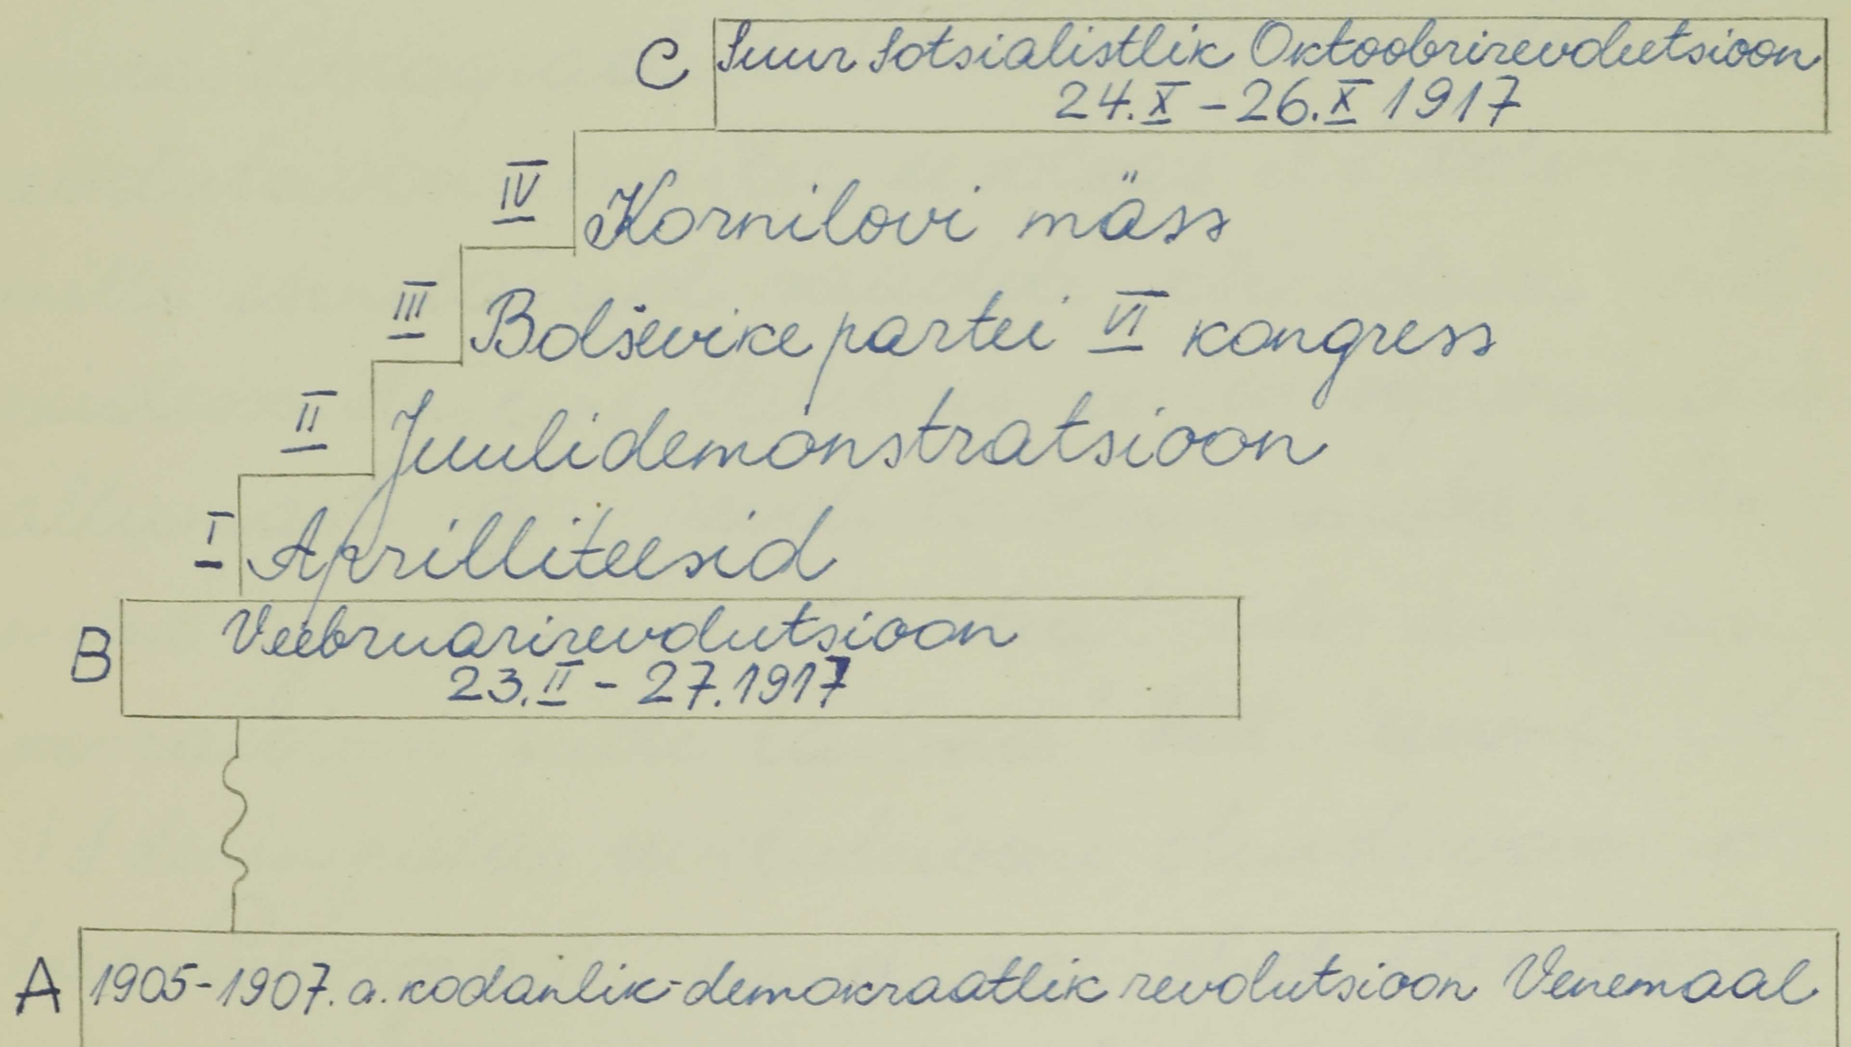 C Suur Sotsialistlik Oktoobrirevolutsioon
24.X – 26.X 1917
IV Kornilovi mäss
III Bolševike partei VI kongress
II Juulidemonstratsioon
I Aprilliteesid
B Veebruarirevolutsioon
23.II – 27.1917
A 1905-1907. a. kodanlik-demokraatlik revolutsioon Venemaal